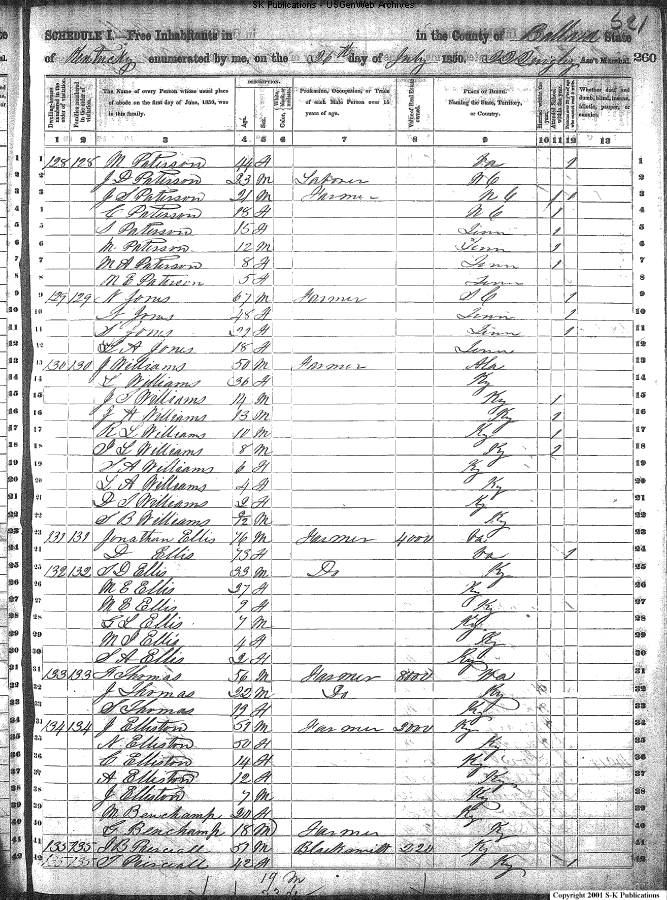 SK Publications - USGenWeb Archives
521
SCHEDULE I.—Free Inhabitants in in the County of Ballard State
of Kentucky enumerated by me, on the 26th day of July 1850. Ass't Marshal. 260
Dwelling-houses numbered in the order of visitation.
Families numbered in the order of visitation.
The Name of every Person whose usual place of abode on the first day of June, 1850, was in this family.
DESCRIPTION.
Age.
Sex.
Color, White, black, or mulatto.
Profession, Occupation, or Trade of each Male Person over 15 years of age.
Value of Real Estate owned.
PLACE OF BIRTH. Naming the State, Territory, or Country.
Married within the year.
Attended School within the year.
Whether deaf and dumb, blind, insane, idiotic, pauper, or convict.
1 2 3 4 5 6 7 8 9 10 11 12 13
1 128 128 M Paterson 44 F Va 1 1
2 J D Paterson 23 M Laborer N C 2
3 J S Paterson 21 M Farmer N C 1 3
4 C Paterson 18 F N C 1 4
5 S Paterson 15 F Tenn 1 5
6 M. Paterson 12 M Tenn 1 6
7 M A Paterson 8 F Tenn 1 7
8 M E Paterson 5 F Tenn 8
9 129 129 N Jones 67 M Farmer S C 1 9
10 Jones 48 F Tenn 1 10
11 Jones F Tenn 1 11
12 A Jones 18 F Tenn 12
13 130 130 J Williams 50 M Farmer Ala 13
14 L Williams 36 F Ky 14
15 J S Williams 14 M Ky 1 15
16 J H Williams 13 M Ky 1 16
17 R L Williams 10 M Ky 1 17
18 L Williams 8 M Ky 1 18
19 A Williams 6 F Ky 19
20 L A Williams 4 F Ky 20
21 D S Williams 2 F Ky 21
22 S B Williams M Ky 22
23 131 131 Jonathan Ellis 76 M Farmer 4000 Va 23
24 D Ellis 73 F Va 1 24
25 132 132 D Ellis 33 M Do Ky 25
26 M E Ellis 27 F Ky 26
27 N E Ellis 9 F Ky 27
28 G L Ellis 7 M Ky 28
29 M Ellis 4 F Ky 29
30 S A Ellis 2 F Ky 30
31 133 133 Thomas 56 M Farmer 8000 Va 31
32 J Thomas 22 M Do Ky 32
33 S Thomas 19 F Ky 33
34 134 134 J Elliston 59 M Farmer 2000 Ky 34
35 N Elliston 50 F Ky 35
36 C Elliston 14 F Ky 36
37 A Elliston 12 F Ky 37
38 J Elliston 7 M Ky 38
39 M Beauchamp 20 F Ky 39
40 G Beauchamp 18 M Farmer Ky 40
41 135 135 J B 57 M Blacksmith 220 Ky 41
42 135 135 42 F Ky 1 42
19 M
Copyright 2001 S-K Publications